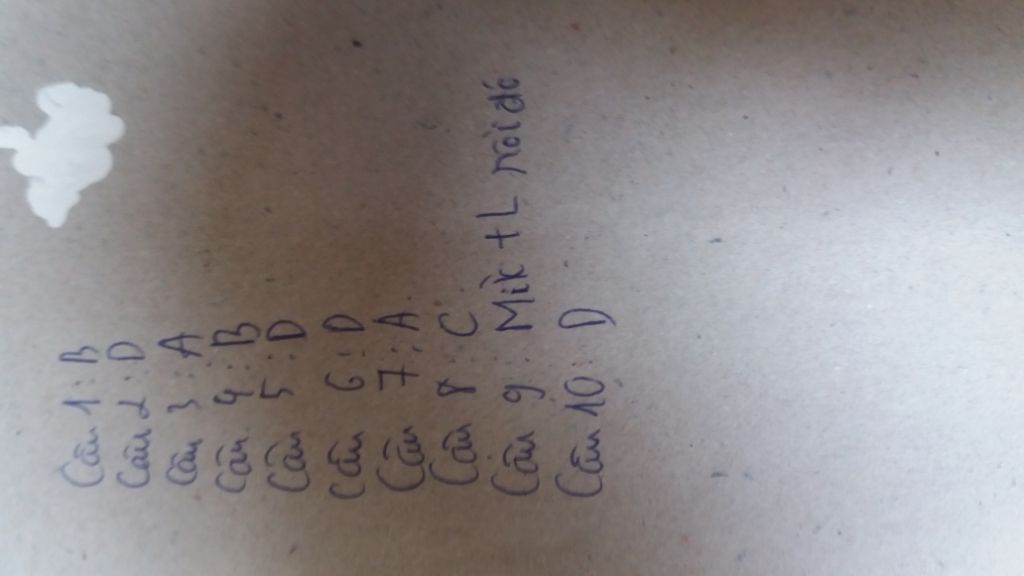 Câu 1: B
Câu 2: D
Câu 3: A
Câu 4: B
Câu 5: D
Câu 6: D
Câu 7: A
Câu 8: C
Câu 9: Mik + L rồi đó
Câu 10: D